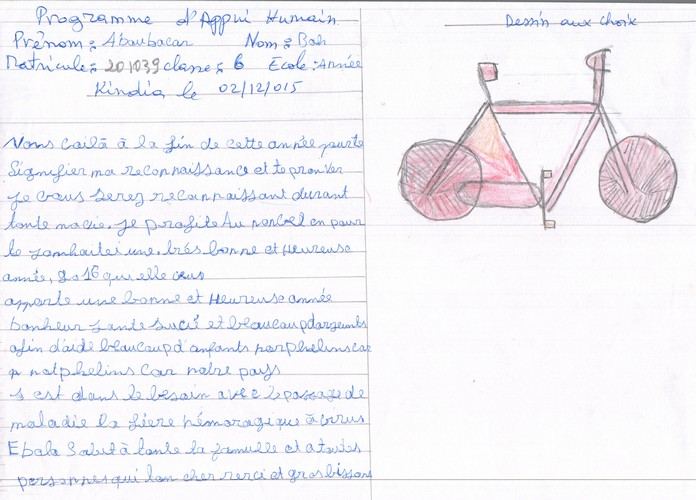 Programme d'Appui Humain
Dessin aux choix
Prénom : Aboubacar Nom : Bah
Matricule : 201039 classe : 6 Ecole : Année
Kindia le 02/12/015
Vous cailà à la fin de cette année pour te
Signifier ma reconnaissance et te prouver
je vous serez reconnaissant durant
toute ma vie. je profite du nouvel en pour
te somhaitei une très bonne et Heureuse
année, 2016 qui elle vous
apporte une bonne et Heureuse année
bonheur sante sucé et beaucoup d'argeunts
afin d'aide beaucoup d'anfants norphelins car
car notre pays
s est dans le besoin avec le passage de
maladie la fièvre hémoragique à virus
Ebola Salut à toute la famille et a toutes
personnes qui lon cher merci et gros bissous